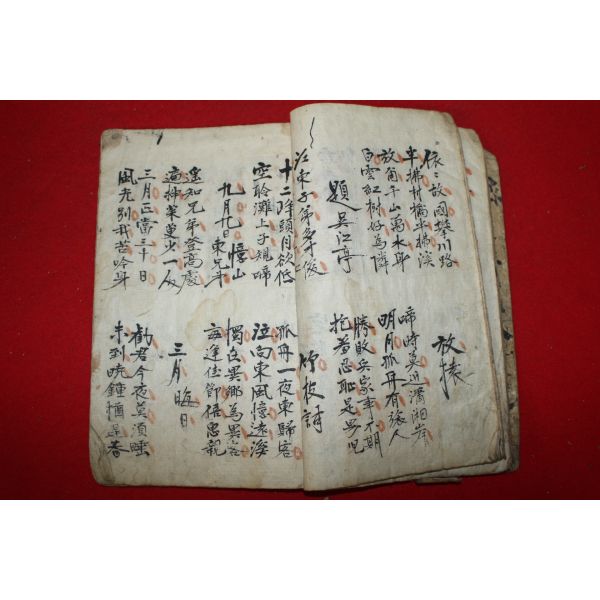 依〻故國樊川路
半拂村橋半拂溪
放猿
放爾千山萬水身
啼時莫近瀟湘岸
白雲紅樹好為隣
明月孤舟有旅人
題吳江亭
勝敗兵家事不期
抱着忍恥是男兒
江東子弟多才俊
竹枝詞
十二峰頭月欲低
孤舟一夜東歸客
空聆灘上子規啼
泣向東風憶遠溪
九月九日憶山
東兄弟
獨在異鄉為異客
每逢佳節倍思親
遙知兄弟登高處
遍揷茱萸少一人
三月晦日
三月正當三十日
勸君今夜莫須睡
風光別我苦吟身
未到曉鍾猶是春